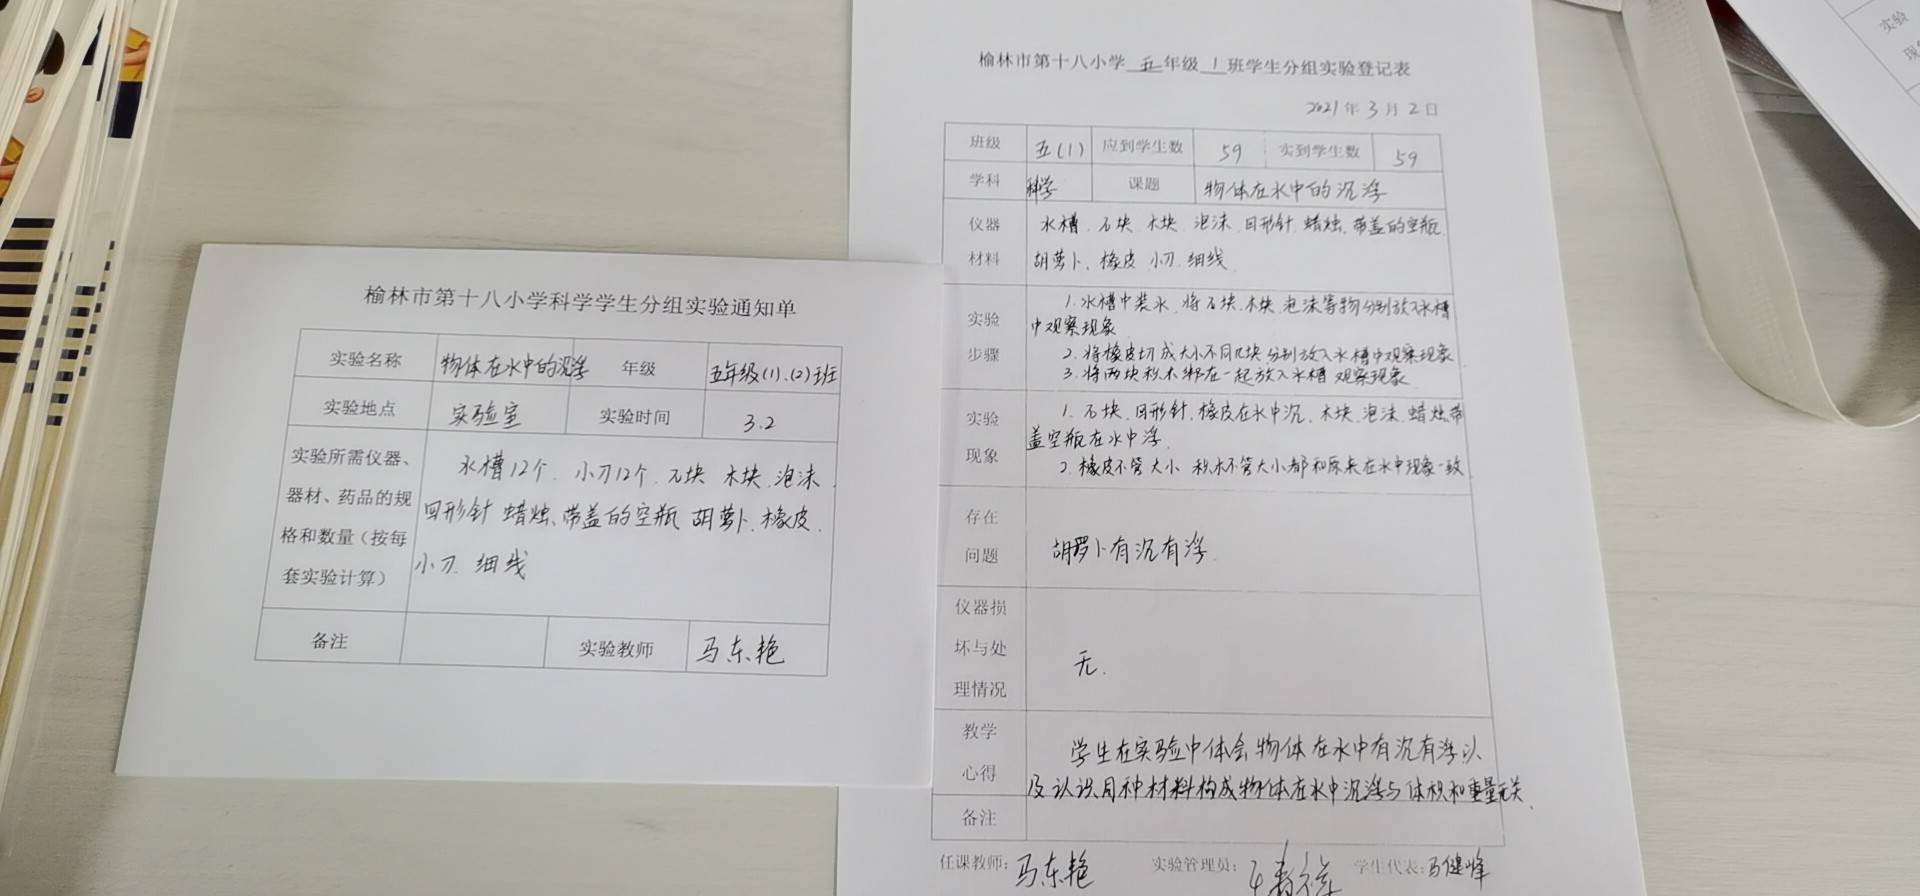 榆林市第十八小学科学学生分组实验通知单
实验名称 物体在水中的沉浮 年级 五年级(1)、(2)班
实验地点 实验室 实验时间 3.2
实验所需仪器、
器材、药品的规
格和数量(按每
套实验计算)
水槽12个. 小刀12个. 石块 木块. 泡沫.
回形针 蜡烛、带盖的空瓶 胡萝卜. 橡皮.
小刀. 细线
备注 实验教师 马东艳
榆林市第十八小学 五 年级 1 班学生分组实验登记表
2021年 3 月 2 日
班级 五(1) 应到学生数 59 实到学生数 59
学科 科学 课题 物体在水中的沉浮
仪器
材料
水槽. 石块. 木块. 泡沫. 回形针. 蜡烛、带盖的空瓶.
胡萝卜、橡皮 小刀. 细线
实验
步骤
1. 水槽中装水. 将石块. 木块. 泡沫等物分别放入水槽
中观察现象
2. 将橡皮切成大小不同几块分别放入水槽中观察现象
3. 将两块积木绑在一起放入水槽 观察现象
实验
现象
1. 石块. 回形针. 橡皮在水中沉. 木块. 泡沫. 蜡烛.带
盖空瓶在水中浮.
2. 橡皮不管大小 积木不管大小都和原来在水中现象一致
存在
问题
胡萝卜有沉有浮.
仪器损
坏与处
理情况
无.
教学
心得
学生在实验中体会物体在水中有沉有浮以
及认识同种材料构成物体在水中沉浮与体积和重量无关.
备注
任课教师: 马东艳 实验管理员: 学生代表: 马健峰
实验